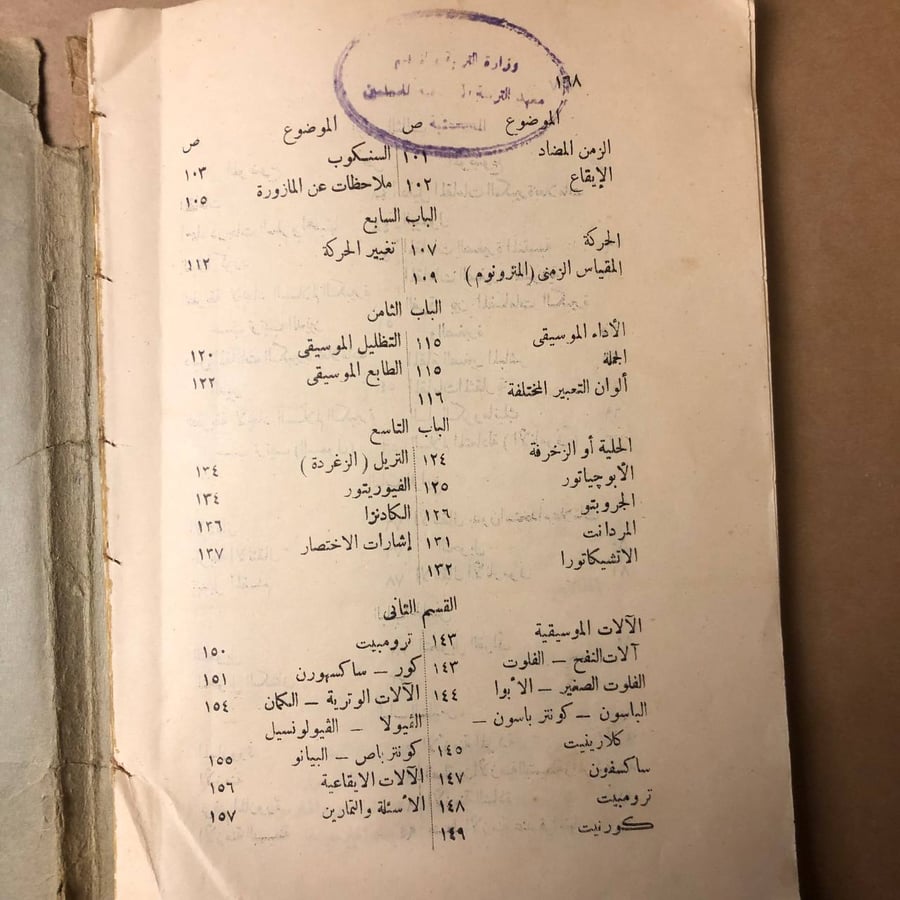 وزارة
معهد للمعلمين
١٦٨
الموضوع ص الموضوع ص
الزمن المضاد ١٠١ السنكوب ١٠٣
الإيقاع ١٠٢ ملاحظات عن المازورة ١٠٥
الباب السابع
الحركة ١٠٧ تغيير الحركة ١١٢
المقياس الزمنى (المترونوم) ١٠٩
الباب الثامن
الأداء الموسيقى ١١٥ التظليل الموسيقى ١٢٠
الجملة ١١٥ الطابع الموسيقى ١٢٢
ألوان التعبير المختلفة ١١٦
الباب التاسع
الحلية أو الزخرفة ١٢٤ التريل (الزغردة) ١٣٤
الأبوجياتور ١٢٥ الفيوريتور ١٣٤
الجروبتو ١٢٦ الكادنزا ١٣٦
المردانت ١٣١ إشارات الاختصار ١٣٧
الاتشيكاتورا ١٣٢
القسم الثانى
الآلات الموسيقية ١٤٣ ترومبيت ١٥٠
آلات النفخ – الفلوت ١٤٣ كور – ساكسهورن ١٥١
الفلوت الصغير – الأبوا ١٤٤ الآلات الوترية – الكمان ١٥٤
الباسون – كونتر باسون – الڤيولا – الڤيولونسيل
كلارينيت ١٤٥ كونترباص – البيانو ١٥٥
ساكسفون ١٤٧ الآلات الايقاعية ١٥٦
ترومبيت ١٤٨ الأسئلة والتمارين ١٥٧
كورنيت ١٤٩